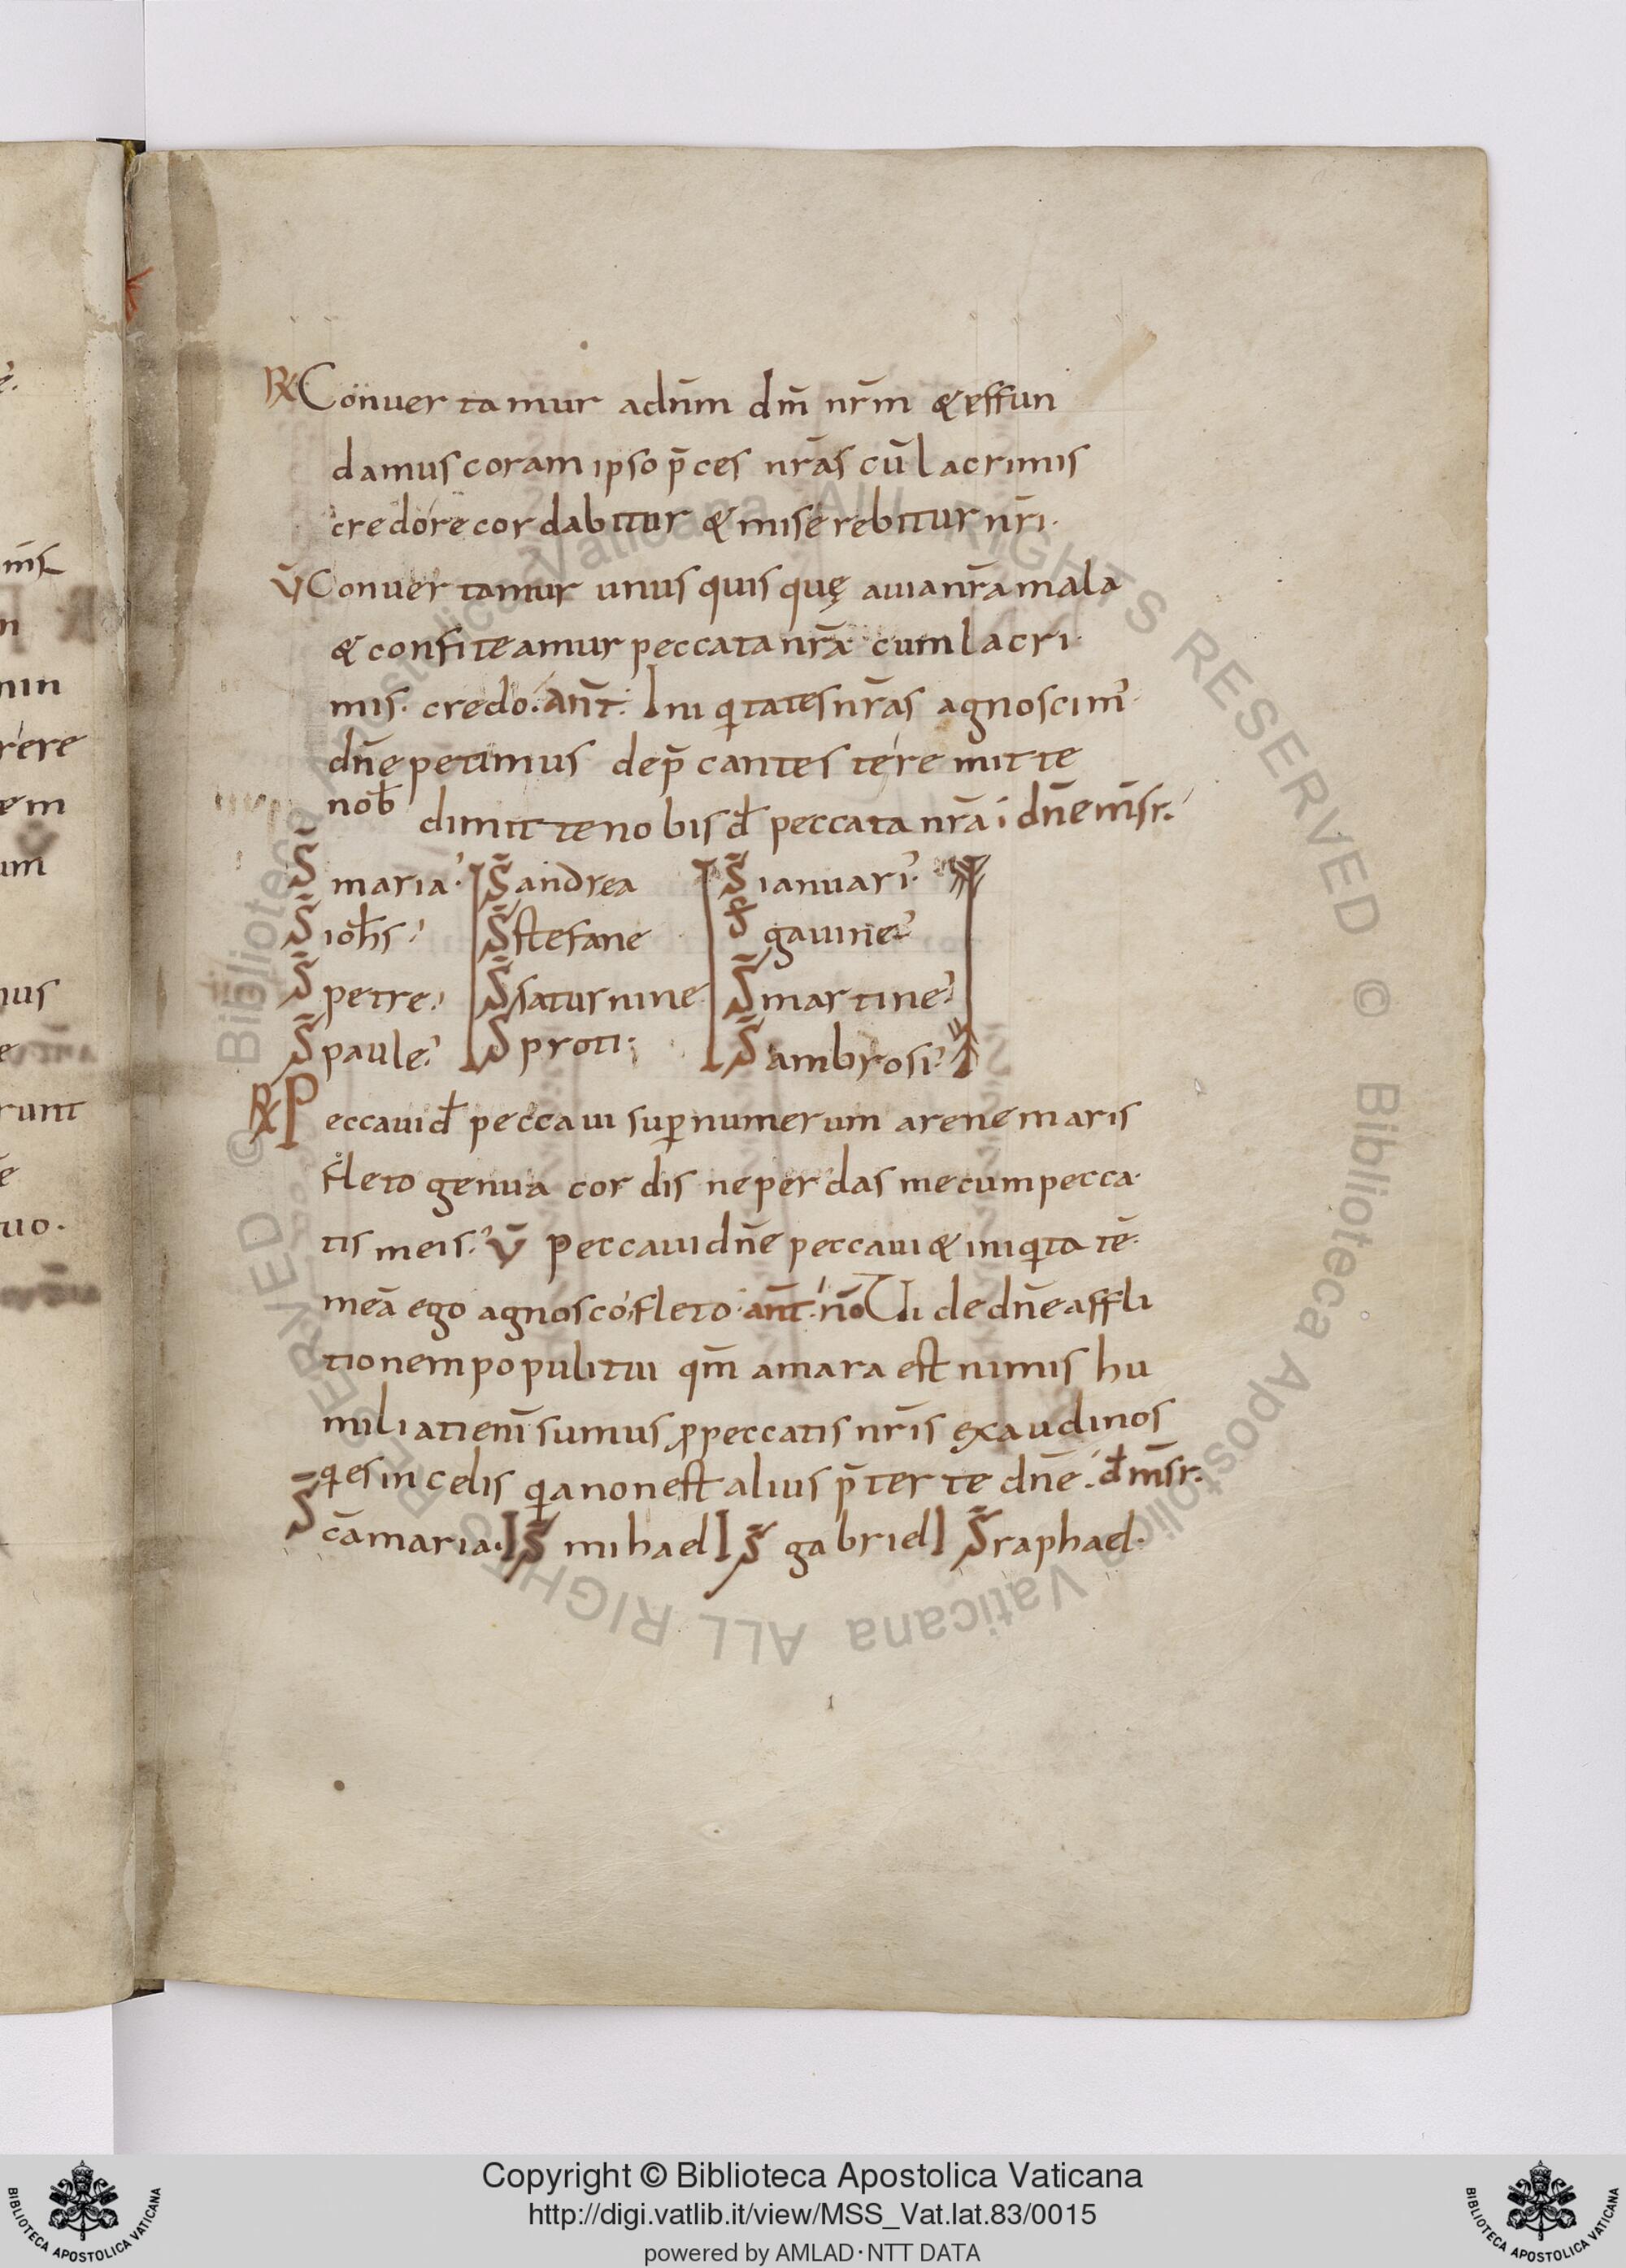 ℟ Conuertamur ad n̄m dm̄ nr̄m & effun
damus coram ipso p̄ces nr̄as cū lacrimis
credo recordabitur & miserebitur nr̄i.
v̄ Conuertamur unus quisquę a uia nr̄a mala
& confiteamur peccata nr̄a cum lacri
mis. credo. ant̄. Iniqitates nr̄as agnoscim'
dn̄e petimus dep̄cantes te remitte
nob̄ dimitte nobis d̄ peccata nr̄a i dn̄e m̄sr.
S̄ maria. S̄ andrea S̄ ianuari.
S̄ ioh̄s. S̄ stefane S̄ gauine.
S̄ petre. S̄ saturnine S̄ martine.
S̄ paule. S̄ proti. S̄ ambrosi.
℟ Peccaui d̄ peccaui super numerum arene maris
fleto genua cordis ne perdas me cum pecca
tis meis. v̄ peccaui dn̄e peccaui & iniqitatē
meā ego agnosco fleto ant̄. n̄o Uide dn̄e affli
tionem populi tui qm̄ amara est nimis hu
miliati eni sumus p peccatis nr̄is exaudi nos
qi es in celis qia non est alius p̄ter te dn̄e. d̄ m̄sr.
S̄cā maria. S̄ mihael S̄ gabriel S̄ raphael.
e.
m̄s
n
nin
rere
em
um
nus
e
runt
ē
uo.
Copyright © Biblioteca Apostolica Vaticana
http://digi.vatlib.it/view/MSS_Vat.lat.83/0015
powered by AMLAD·NTT DATA
© Biblioteca Apostolica Vaticana ALL RIGHTS RESERVED © Biblioteca Apostolica Vaticana ALL RIGHTS RESERVED
BIBLIOTECA APOSTOLICA VATICANA
BIBLIOTECA APOSTOLICA VATICANA